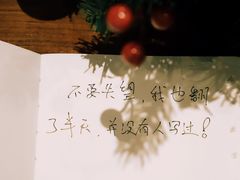 不要失望,我也翻
了半天,并没有人写过!